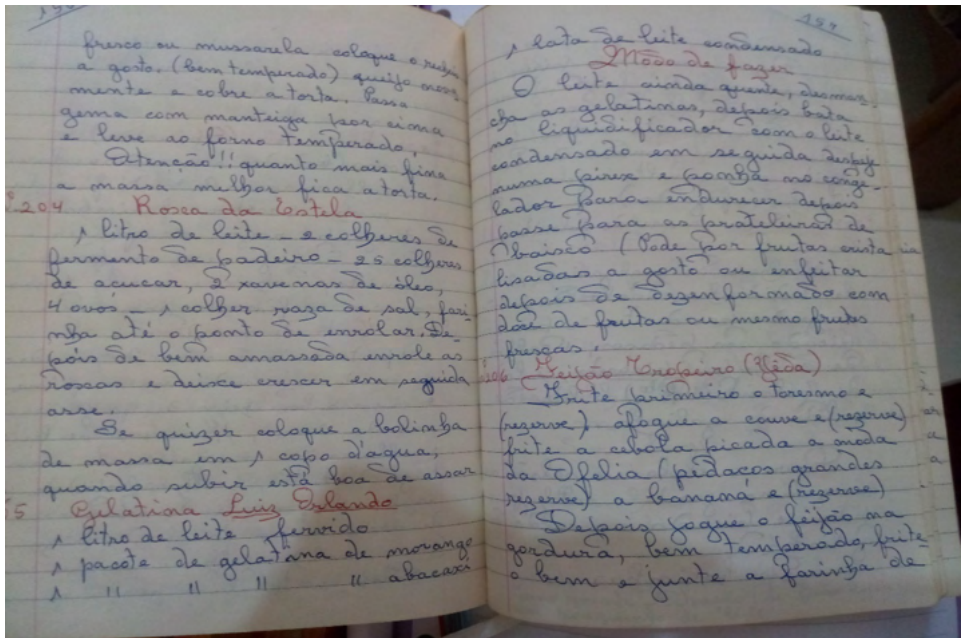 fresco ou mussarela coloque o
a gosto. (bem temperado) queijo
mente e cobre a torta. Passa
gema com manteiga por cima
e leve ao forno temperado.
Atenção!! quanto mais fina
a massa melhor fica a torta.
204 Rosca da Estela
1 litro de leite – 2 colheres de
fermento de padeiro – 25 colheres
de açucar, 2 xavenas de óleo,
4 ovos – 1 colher raza de sal, fari-
nha até o ponto de enrolar. De-
pois de bem amassada enrole as
roscas e deixe crescer em seguida
asse.
Se quizer coloque a bolinha
de massa em 1 copo d'agua,
quando subir está boa de assar
5 Gelatina Luiz Orlando
1 litro de leite fervido
1 pacote de gelatina de morango
1 " " " " abacaxi
1 lata de leite condensado
Modo de fazer
O leite ainda quente, desman-
cha as gelatinas, depois bata
no liquidificador com o leite
condensado em seguida despeje
numa pirex e ponha no conge-
lador para endurecer depois
passe para as prateleiras de
baixo (Pode por frutas crista
lisadas a gosto ou enfeitar
depois de dezenformado com
doce de frutas ou mesmo frutas
frescas.
206 Feijão Tropeiro (Elida)
Frite primeiro o toresmo e
(rezerve) afogue a couve e (rezerve)
frite a cebola picada a moda
da Ofelia (pedaços grandes
rezerve) a banana e (rezerve)
Depois jogue o feijão na
gordura, bem temperado, frite-
o bem e junte a farinha de